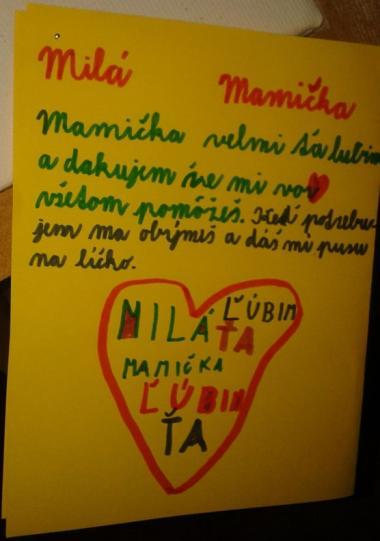 Milá Mamička
Mamička velmi ťa lubim
a dakujem že mi vo
všetom pomôžeš. Keď potrebu-
jem ma obýmeš a dáš mi pusu
na líčko.
MILÁ ĽÚBIM
ŤA
MAMIČKA
ĽÚBIM
ŤA